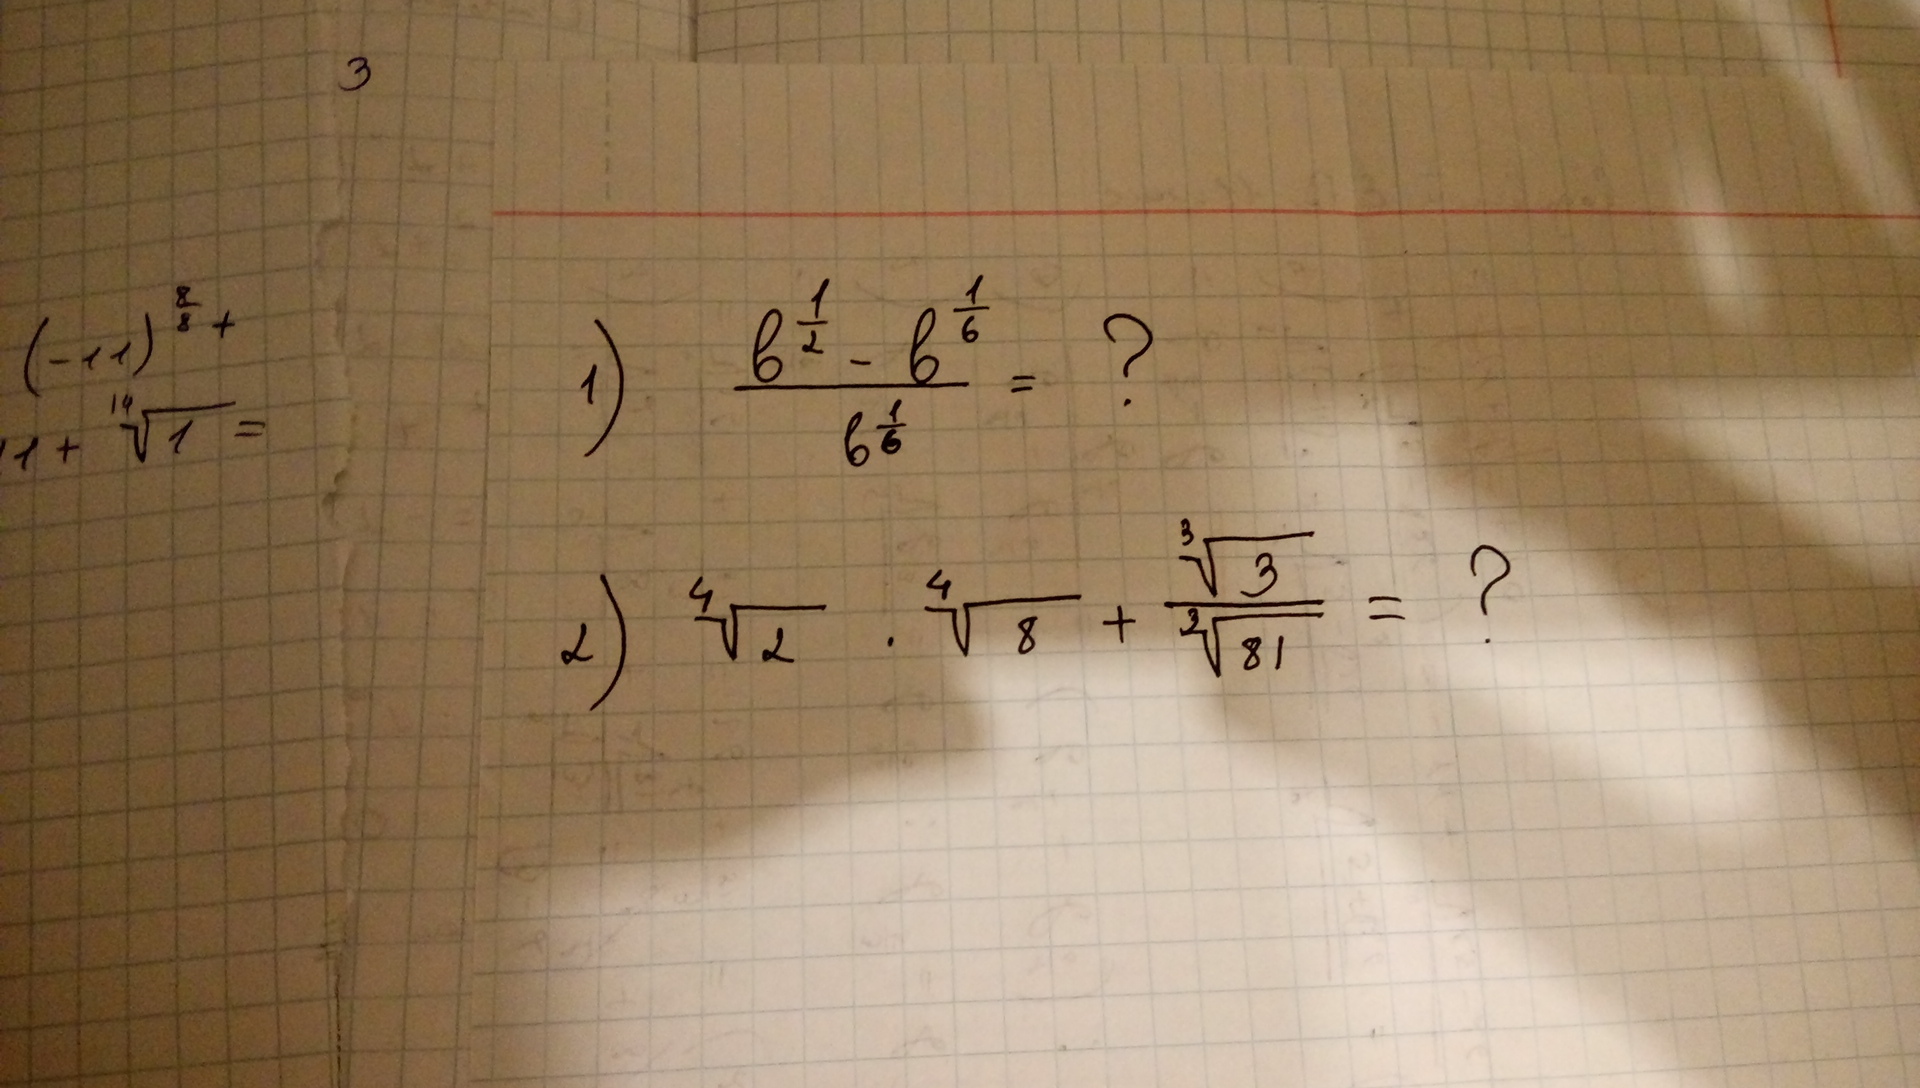 3
(-11)^{8/8} +
11 + \sqrt[14]{1} =
1) \frac{b^{\frac{1}{2}} - b^{\frac{1}{6}}}{b^{\frac{1}{6}}} = ?
2) \sqrt[4]{2} \cdot \sqrt[4]{8} + \frac{\sqrt[3]{3}}{\sqrt[3]{81}} = ?